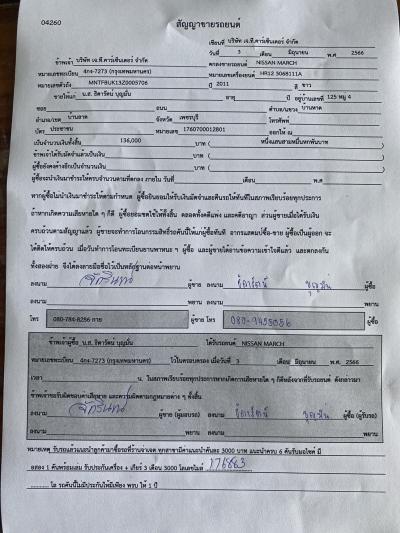 04260
สัญญาขายรถยนต์
เขียนที่ บริษัท เจ.ที.คาร์เซ็นเตอร์ จำกัด
วันที่ 3 เดือน มิถุนายน พ.ศ 2566
ข้าพเจ้า บริษัท เจ.ที.คาร์เซ็นเตอร์ จำกัด ตกลงขายรถยนต์ NISSAN MARCH
หมายเลขทะเบียน 4กง-7273 (กรุงเทพมหานคร) หมายเลขเครื่องยนต์ HR12 3068111A
หมายเลขตัวถัง MNTFBUK13Z0005706 ปี 2011 สี ขาว
ขายให้แก่ น.ส. ธิดารัตน์ บุญมั่น อายุ ปี อยู่บ้านเลขที่ 125 หมู่ 4
ซอย ถนน ตำบล/แขวง บ้านหาด
อำเภอ/เขต บ้านลาด จังหวัด เพชรบุรี โทรศัพท์
บัตร ประชาชน หมายเลข 1760700012801 ออกให้ ณ
เป็นจำนวนเงินทั้งสิ้น 136,000 บาท ( หนึ่งแสนสามหมื่นหกพันบาท )
ข้าพเจ้าได้รับมัดจำแล้วเป็นเงิน บาท ( )
ผู้ซื้อยังคงค้างอีกเป็นจำนวนเงิน บาท ( )
ผู้ซื้อจะนำเงินมาชำระให้ครบจำนวนตามที่ตกลง ภายใน วันที่ เดือน พ.ศ
หากผู้ซื้อไม่นำเงินมาชำระให้ตามกำหนด ผู้ซื้อยินยอมให้ริบเงินมัดจำและคืนรถให้ทันทีในสภาพเรียบร้อยทุกประการ
ถ้าหากเกิดความเสียหายใด ๆ ก็ดี ผู้ซื้อยอมชดใช้ให้ทั้งสิ้น ตลอดทั้งคดีแพ่ง และคดีอาญา ส่วนผู้ขายเมื่อได้รับเงิน
ครบถ้วนตามสัญญาแล้ว ผู้ขายจะทำการโอนกรรมสิทธิ์รถคันนี้ให้แก่ผู้ซื้อทันที อากรแสตมป์ซื้อ-ขาย ผู้ซื้อเป็นผู้ออก จะ
ได้ติดให้ครบถ้วน เมื่อวันทำการโอนทะเบียนยานพาหนะ ฯ ผู้ซื้อ และผู้ขายได้อ่านข้อความเข้าใจดีแล้ว และตกลงกัน
ทั้งสองฝ่าย จึงได้ลงลายมือชื่อไว้เป็นหลักฐานต่อหน้าพยาน
ลงนาม ผู้ขาย ลงนาม ธิดารัตน์ บุญมั่น ผู้ซื้อ
ลงนาม พยาน ลงนาม พยาน
โทร 080-784-8256 สาย ผู้ขาย โทร ผู้ซื้อ
ข้าพเจ้าผู้ซื้อ น.ส. ธิดารัตน์ บุญมั่น ได้รับรถยนต์ NISSAN MARCH
หมายเลขทะเบียน 4กง-7273 (กรุงเทพมหานคร) ไว้ในครอบครอง เมื่อวันที่ 3 เดือน มิถุนายน พ.ศ. 2566
เวลา น. ในสภาพเรียบร้อยทุกประการหากเกิดการเสียหายใด ๆ ก็ดีหลังจากที่รับรถยนต์ ดังกล่าวมา
ข้าพเจ้าขอรับผิดชอบค่าเสียหาย และความผิดตามกฎหมายต่าง ๆ ทั้งสิ้น
ลงนาม ผู้ขาย (ผู้มอบรถ) ลงนาม ธิดารัตน์ บุญมั่น ผู้ซื้อ (ผู้รับรถ)
ลงนาม พยาน ลงนาม พยาน